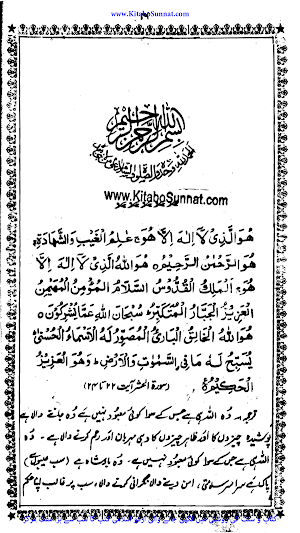 www.KitaboSunnat.com
بسم الله الرحمن الرحيم
www.KitaboSunnat.com
هُوَ الَّذِىْ لَآ اِلٰهَ اِلَّا هُوَ ج عٰلِمُ الْغَيْبِ وَالشَّهَادَةِ ج
هُوَ الرَّحْمٰنُ الرَّحِيْمُ ه هُوَ اللهُ الَّذِىْ لَآ اِلٰهَ اِلَّا
هُوَ ج اَلْمَلِكُ الْقُدُّوْسُ السَّلَامُ الْمُؤْمِنُ الْمُهَيْمِنُ
الْعَزِيْزُ الْجَبَّارُ الْمُتَكَبِّرُ ط سُبْحَانَ اللهِ عَمَّا يُشْرِكُوْنَ ه
هُوَ اللهُ الْخَالِقُ الْبَارِئُ الْمُصَوِّرُ لَهُ الْاَسْمَآءُ الْحُسْنٰى ط
يُسَبِّحُ لَهٗ مَا فِى السَّمٰوٰتِ وَالْاَرْضِ ج وَهُوَ الْعَزِيْزُ
الْحَكِيْمُ ه (سورة الحشر آیت ۲۲ تا ۲۴)
ترجمہ: وہ اللہ ہی ہے جس کے سوا کوئی معبود نہیں ہے وہ جاننے والا ہے
پوشیدہ چیزوں کا اور ظاہر چیزوں کا وہی مہربان اور رحم کرنے والا ہے۔ وہ
اللہ ہی ہے جس کے سوا کوئی معبود نہیں ہے۔ وہ بادشاہ ہے (سب عیبوں سے)
پاک ہے سراسر سلامتی، امن دینے والا نگرانی کرنے والا، سب پر غالب اپنا حکم